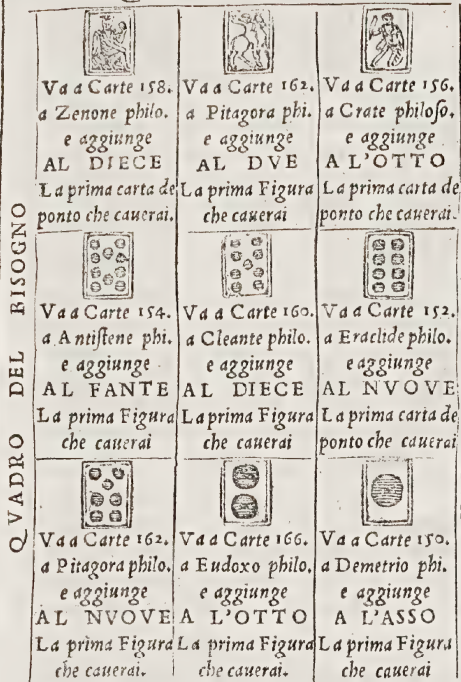 QVADRO DEL BISOGNO
Va a Carte 158.
a Zenone philo.
e aggiunge
AL DIECE
La prima carta de
ponto che cauerai.
Va a Carte 162.
a Pitagora phi.
e aggiunge
AL DVE
La prima Figura
che cauerai
Va a Carte 156.
a Crate philoſo.
e aggiunge
A L'OTTO
La prima carta de
ponto che cauerai.
Va a Carte 154.
a Antiſtene phi.
e aggiunge
AL FANTE
La prima Figura
che cauerai
Va a Carte 160.
a Cleante philo.
e aggiunge
AL DIECE
La prima Figura
che cauerai
Va a Carte 152.
a Eraclide philo.
e aggiunge
AL NVOVE
La prima carta de
ponto che cauerai
Va a Carte 162.
a Pitagora philo.
e aggiunge
AL NVOVE
La prima Figura
che cauerai.
Va a Carte 166.
a Eudoxo philo.
e aggiunge
A L'OTTO
La prima Figura
che cauerai.
Va a Carte 150.
a Demetrio phi.
e aggiunge
A L'ASSO
La prima Figura
che cauerai